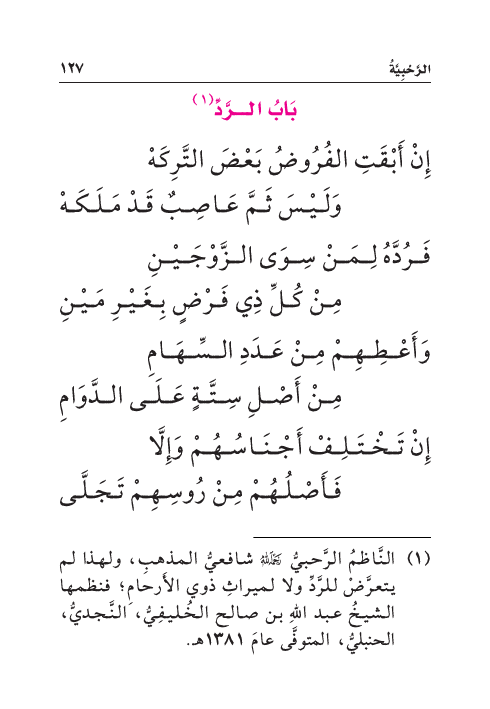 الرَّحْبِيَّةُ ١٢٧
بَابُ الــرَّدِّ(١)
إِنْ أَبْقَتِ الفُرُوضُ بَعْضَ التَّرِكَهْ
وَلَيْسَ ثَمَّ عَاصِبٌ قَدْ مَلَكَهْ
فَـرُدَّهُ لِـمَـنْ سِـوَى الـزَّوْجَـيْـنِ
مِـنْ كُـلِّ ذِي فَـرْضٍ بِـغَـيْـرِ مَـيْـنِ
وَأَعْـطِـهِـمْ مِـنْ عَـدَدِ الـسِّـهَـامِ
مِـنْ أَصْـلِ سِـتَّـةٍ عَـلَـى الـدَّوَامِ
إِنْ تَـخْـتَـلِـفْ أَجْـنَـاسُـهُـمْ وَإِلَّا
فَـأَصْـلُـهُـمْ مِـنْ رُوسِـهِـمْ تَـجَـلَّـى
(١) النَّاظمُ الرَّحبيُّ ﵀ شافعيُّ المذهبِ، ولهذا لم
يتعرَّضْ للرَّدِّ ولا لميراثِ ذوي الأَرحامِ؛ فنظمها
الشيخُ عبد اللهِ بن صالح الخُليفِيُّ، النَّجديُّ،
الحنبليُّ، المتوفَّى عامَ ١٣٨١هـ.